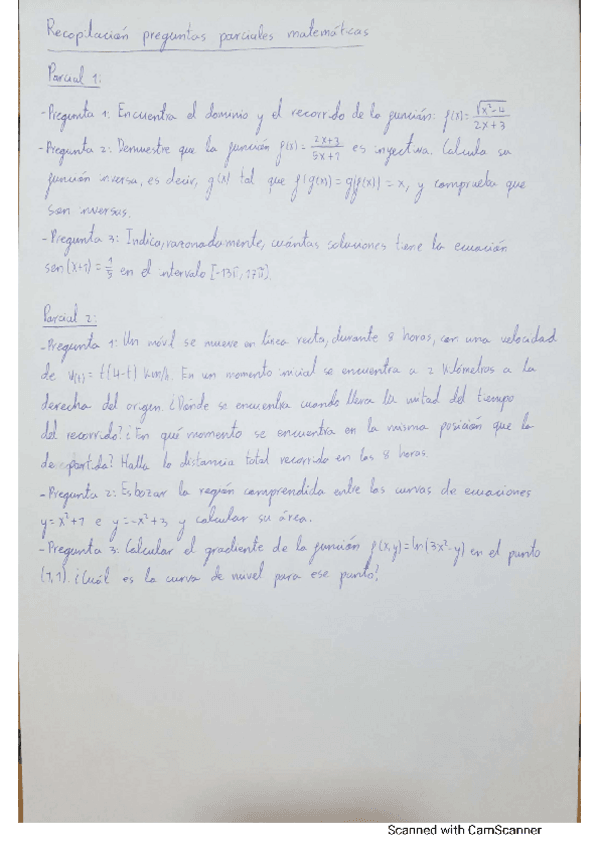 Recopilación preguntas parciales matemáticas
Parcial 1:
-Pregunta 1: Encuentra el dominio y el recorrido de la función: f(x)=√(x²-4)/(2x+3)
-Pregunta 2: Demuestre que la función f(x)=(2x+3)/(5x+1) es inyectiva. Calcula su
función inversa, es decir, g(x) tal que f(g(x))=g(f(x))=x, y comprueba que
son inversas.
-Pregunta 3: Indica, razonadamente, cuántas soluciones tiene la ecuación
sen(x+1)=1/5 en el intervalo [-13π, 17π].
Parcial 2:
-Pregunta 1: Un móvil se mueve en línea recta, durante 8 horas, con una velocidad
de v(t)=t(4-t) km/h. En un momento inicial se encuentra a 2 kilómetros a la
derecha del origen. ¿Dónde se encuentra cuando lleva la mitad del tiempo
del recorrido? ¿En qué momento se encuentra en la misma posición que la
de partida? Halla la distancia total recorrida en las 8 horas.
-Pregunta 2: Esbozar la región comprendida entre las curvas de ecuaciones
y=x²+1 e y=-x²+3 y calcular su área.
-Pregunta 3: Calcular el gradiente de la función f(x,y)=ln(3x²-y) en el punto
(1,1). ¿Cuál es la curva de nivel para ese punto?
Scanned with CamScanner